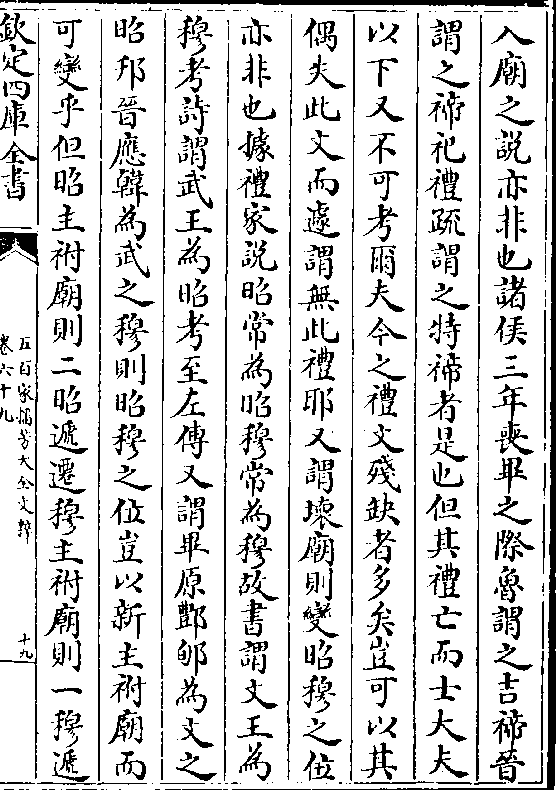 入廟之説亦非也諸侯三年喪畢之際魯謂之吉禘晉
謂之禘祀禮疏謂之特禘者是也但其禮亡而士大夫
以下又不可考爾夫今之禮文殘缺者多矣豈可以其
偶失此文而遽謂無此禮耶又謂壞廟則變昭穆之位
亦非也據禮家説昭常為昭穆常為穆故書謂文王為
穆考詩謂武王為昭考至左傳又謂畢原酆郇為文之
昭邘晉應韓為武之穆則昭穆之位豈以新主祔廟而
可變乎但昭主祔廟則二昭遞遷穆主祔廟則一穆遞
欽定四庫全書
五百家播芳大全文粹
卷六十九
十九